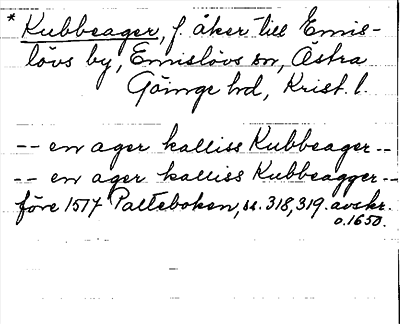 * Kubbeager, f. åker till Emis-
lövs by, Emislövs sn, Östra
Göinge hd, Krist. l.
-- en ager kalliss Kubbeager --
-- en ager kalliss Kubbeagger --
före 1517 Palteboken, ss. 318, 319. avskr.
o. 1650.